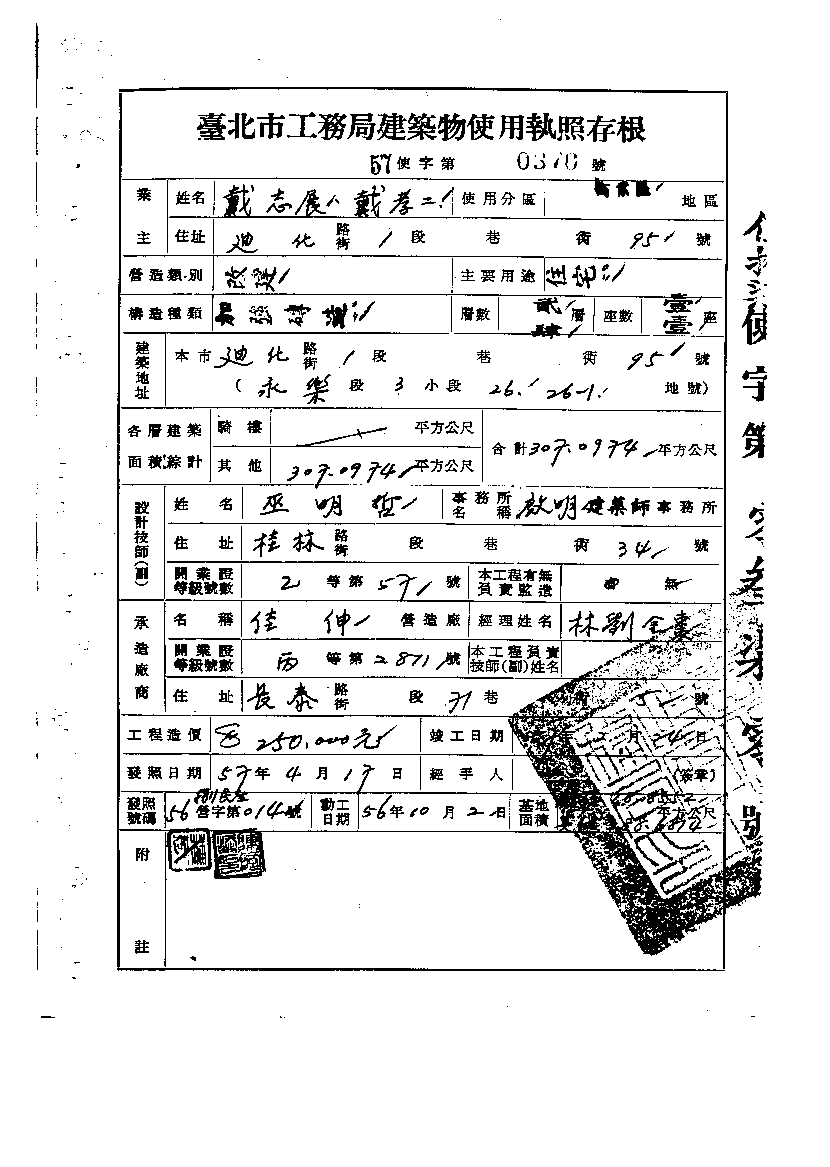 臺北市工務局建築物使用執照存根
57使字第 0370 號
業主 姓名 戴志展 戴孝二 使用分區 地區
住址 迪化 路街 1 段 巷 衖 95 號
營造類別 改建 主要用途 住宅
構造種類 加強磚造 層數 貳 肆 層 座數 壹 壹 座
建築地址 本市 迪化 路街 1 段 巷 衖 95 號
(永樂 段 3 小段 26. 26-1. 地號)
各層建築面積綜計 騎樓 平方公尺 合計 307.0974 平方公尺
其他 307.0974 平方公尺
設計技師(副) 姓名 巫明哲 事務所名稱 啟明建築師事務所
住址 桂林 路街 段 巷 衖 34 號
開業證等級號數 2 等第 571 號 本工程有無負責監造 無
承造廠商 名稱 佳伸 營造廠 經理姓名 林劉
開業證等級號數 丙 等第 2871 號 本工程負責技師(副)姓名
住址 長泰 路街 段 71 巷 衖 5 號
工程造價 250,000元 竣工日期 年 2 月 24 日
發照日期 57 年 4 月 17 日 經手人 (簽章)
發照號碼 56 營字第 014 號 動工日期 56 年 10 月 2 日 基地面積 平方公尺
附註
使字第 零 號